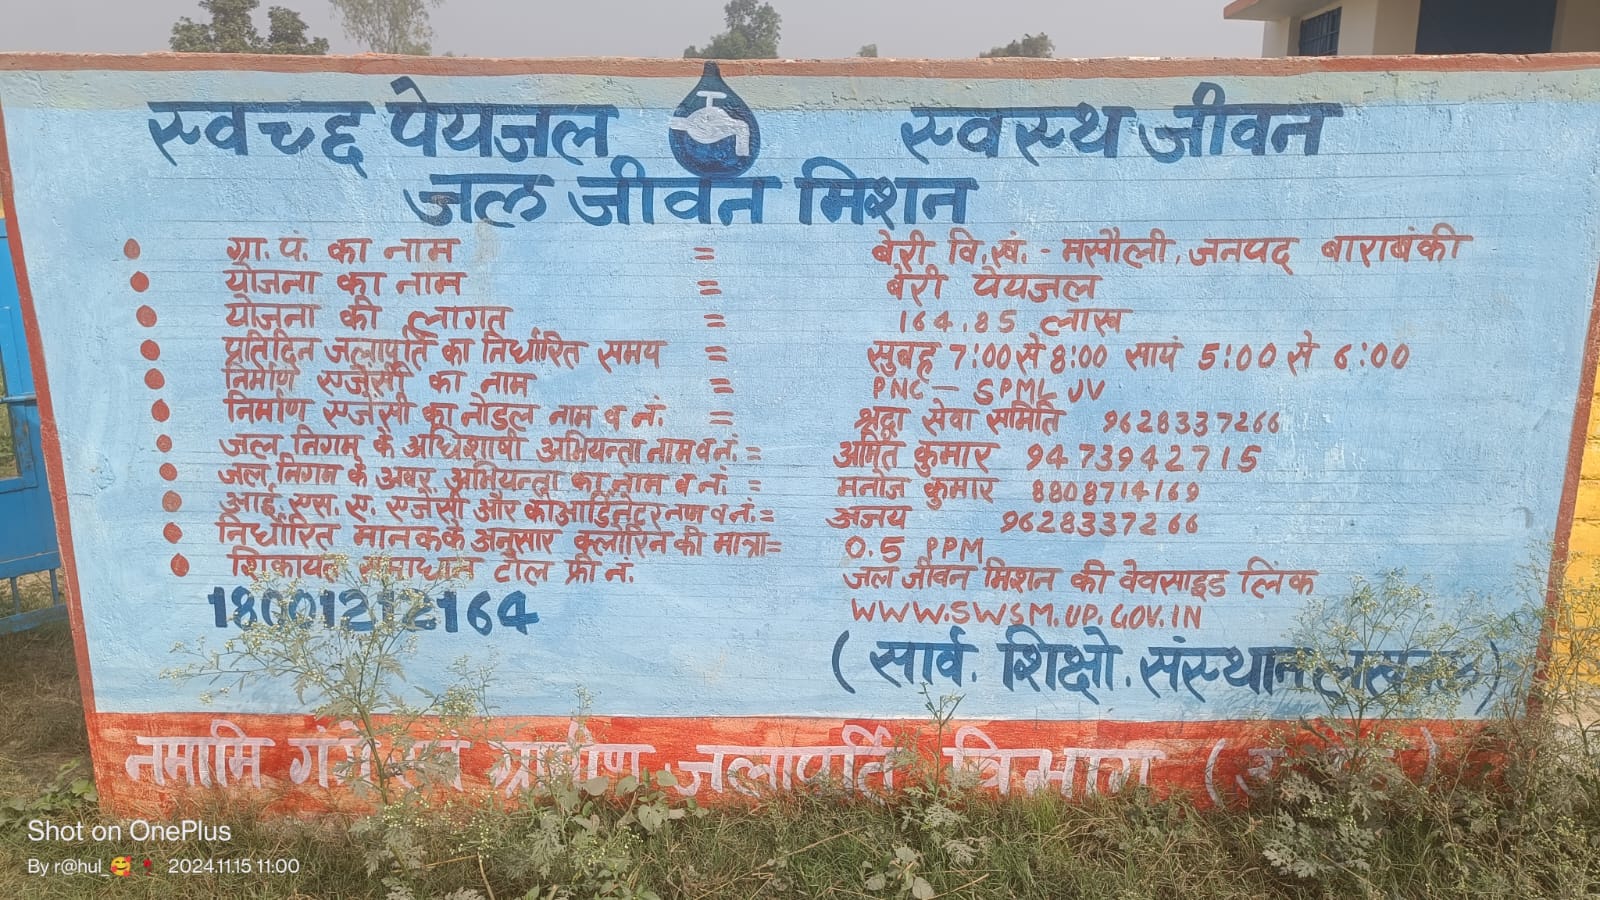 स्वच्छ पेयजल स्वस्थ जीवन
जल जीवन मिशन
ग्रा. पं. का नाम = बेरी वि.खं. - मसौली, जनपद बाराबंकी
योजना का नाम = बेरी पेयजल
योजना की लागत = 164.85 लाख
प्रतिदिन जलापूर्ति का निर्धारित समय = सुबह 7:00 से 8:00 सायं 5:00 से 6:00
निर्माण एजेंसी का नाम = PNC - SPML JV
निर्माण एजेंसी का नोडल नाम व नं. = श्रद्धा सेवा समिति 9628337266
जल निगम के अधिशाषी अभियन्ता नाम व नं. = अमित कुमार 9473942715
जल निगम के अवर अभियन्ता का नाम व नं. = मनोज कुमार 8808714169
आई. एस. ए. एजेंसी और कोआर्डिनेटर नाम व नं. = अजय 9628337266
निर्धारित मानक के अनुसार क्लोरिन की मात्रा = 0.5 PPM
शिकायत समाधान टोल फ्री नं. जल जीवन मिशन की वेवसाइड लिंक
18001212164 WWW.SWSM.UP.GOV.IN
(सार्व. शिक्षो. संस्थान लखनऊ)
नमामि गंगे एवं ग्रामीण जलापूर्ति विभाग
Shot on OnePlus
By r@hul_🥰 2024.11.15 11:00